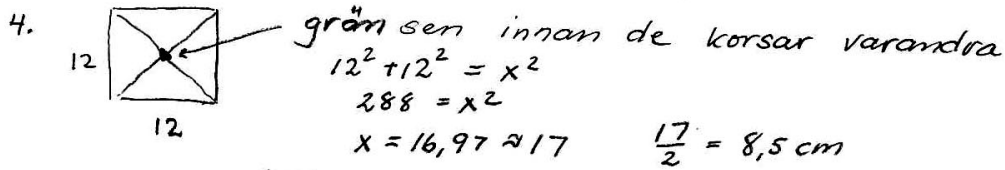 4.
gränsen innan de korsar varandra
12
12² + 12² = x²
288 = x²
12
x = 16,97 ≈ 17 17/2 = 8,5 cm